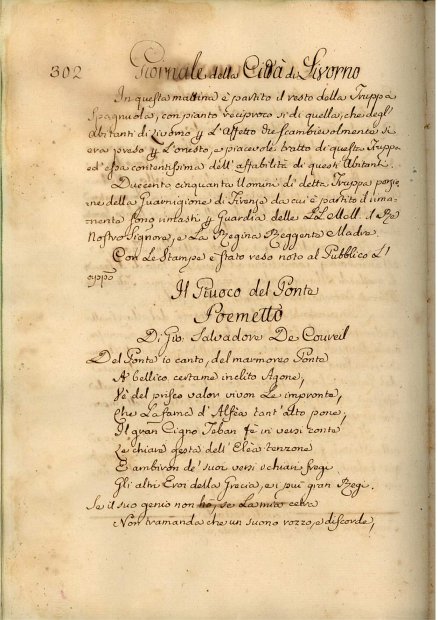 302 Giornale della Città di Livorno
In questa mattina è partito il resto della Truppa
Spagnuola, con pianto reciproco sì di quella, che degl'
Abitanti di Livorno p l'Affetto che scambievolmente si
era preso p l'onesto, e piacevole tratto di questa Truppa
ed essa contentissima dell'affabilità di questi Abitanti.
Duecento cinquanta Uomini di detta Truppa
della Guarnigione di Firenze da cui è partito il rima-
nente sono rimasti p Guardia delle LL. MM. il Re
Nostro Signore, e La Regina Reggente Madre.
Con Le Stampe è stato reso noto al Pubblico L'
Il Giuoco del Ponte
Poemetto
Di Gio. Salvadore De Coureil
Del Ponte io canto, del marmoreo Ponte
A bellico certame inclito Agone,
Ve del prisco valor vivon Le impronte,
Che La fama d'Alfea tant'alto pone;
Il gran Cigno Teban fè in versi conte
Le chiare gesta dell'Elèa tenzone
E ambiron de' suoi versi i chiari fregi
Gli altri Eroi della Grecia, e i più gran Regi.
Se il suo genio non hò, se La mia cetra
Non tramanda che un suono rozzo, e discorde,